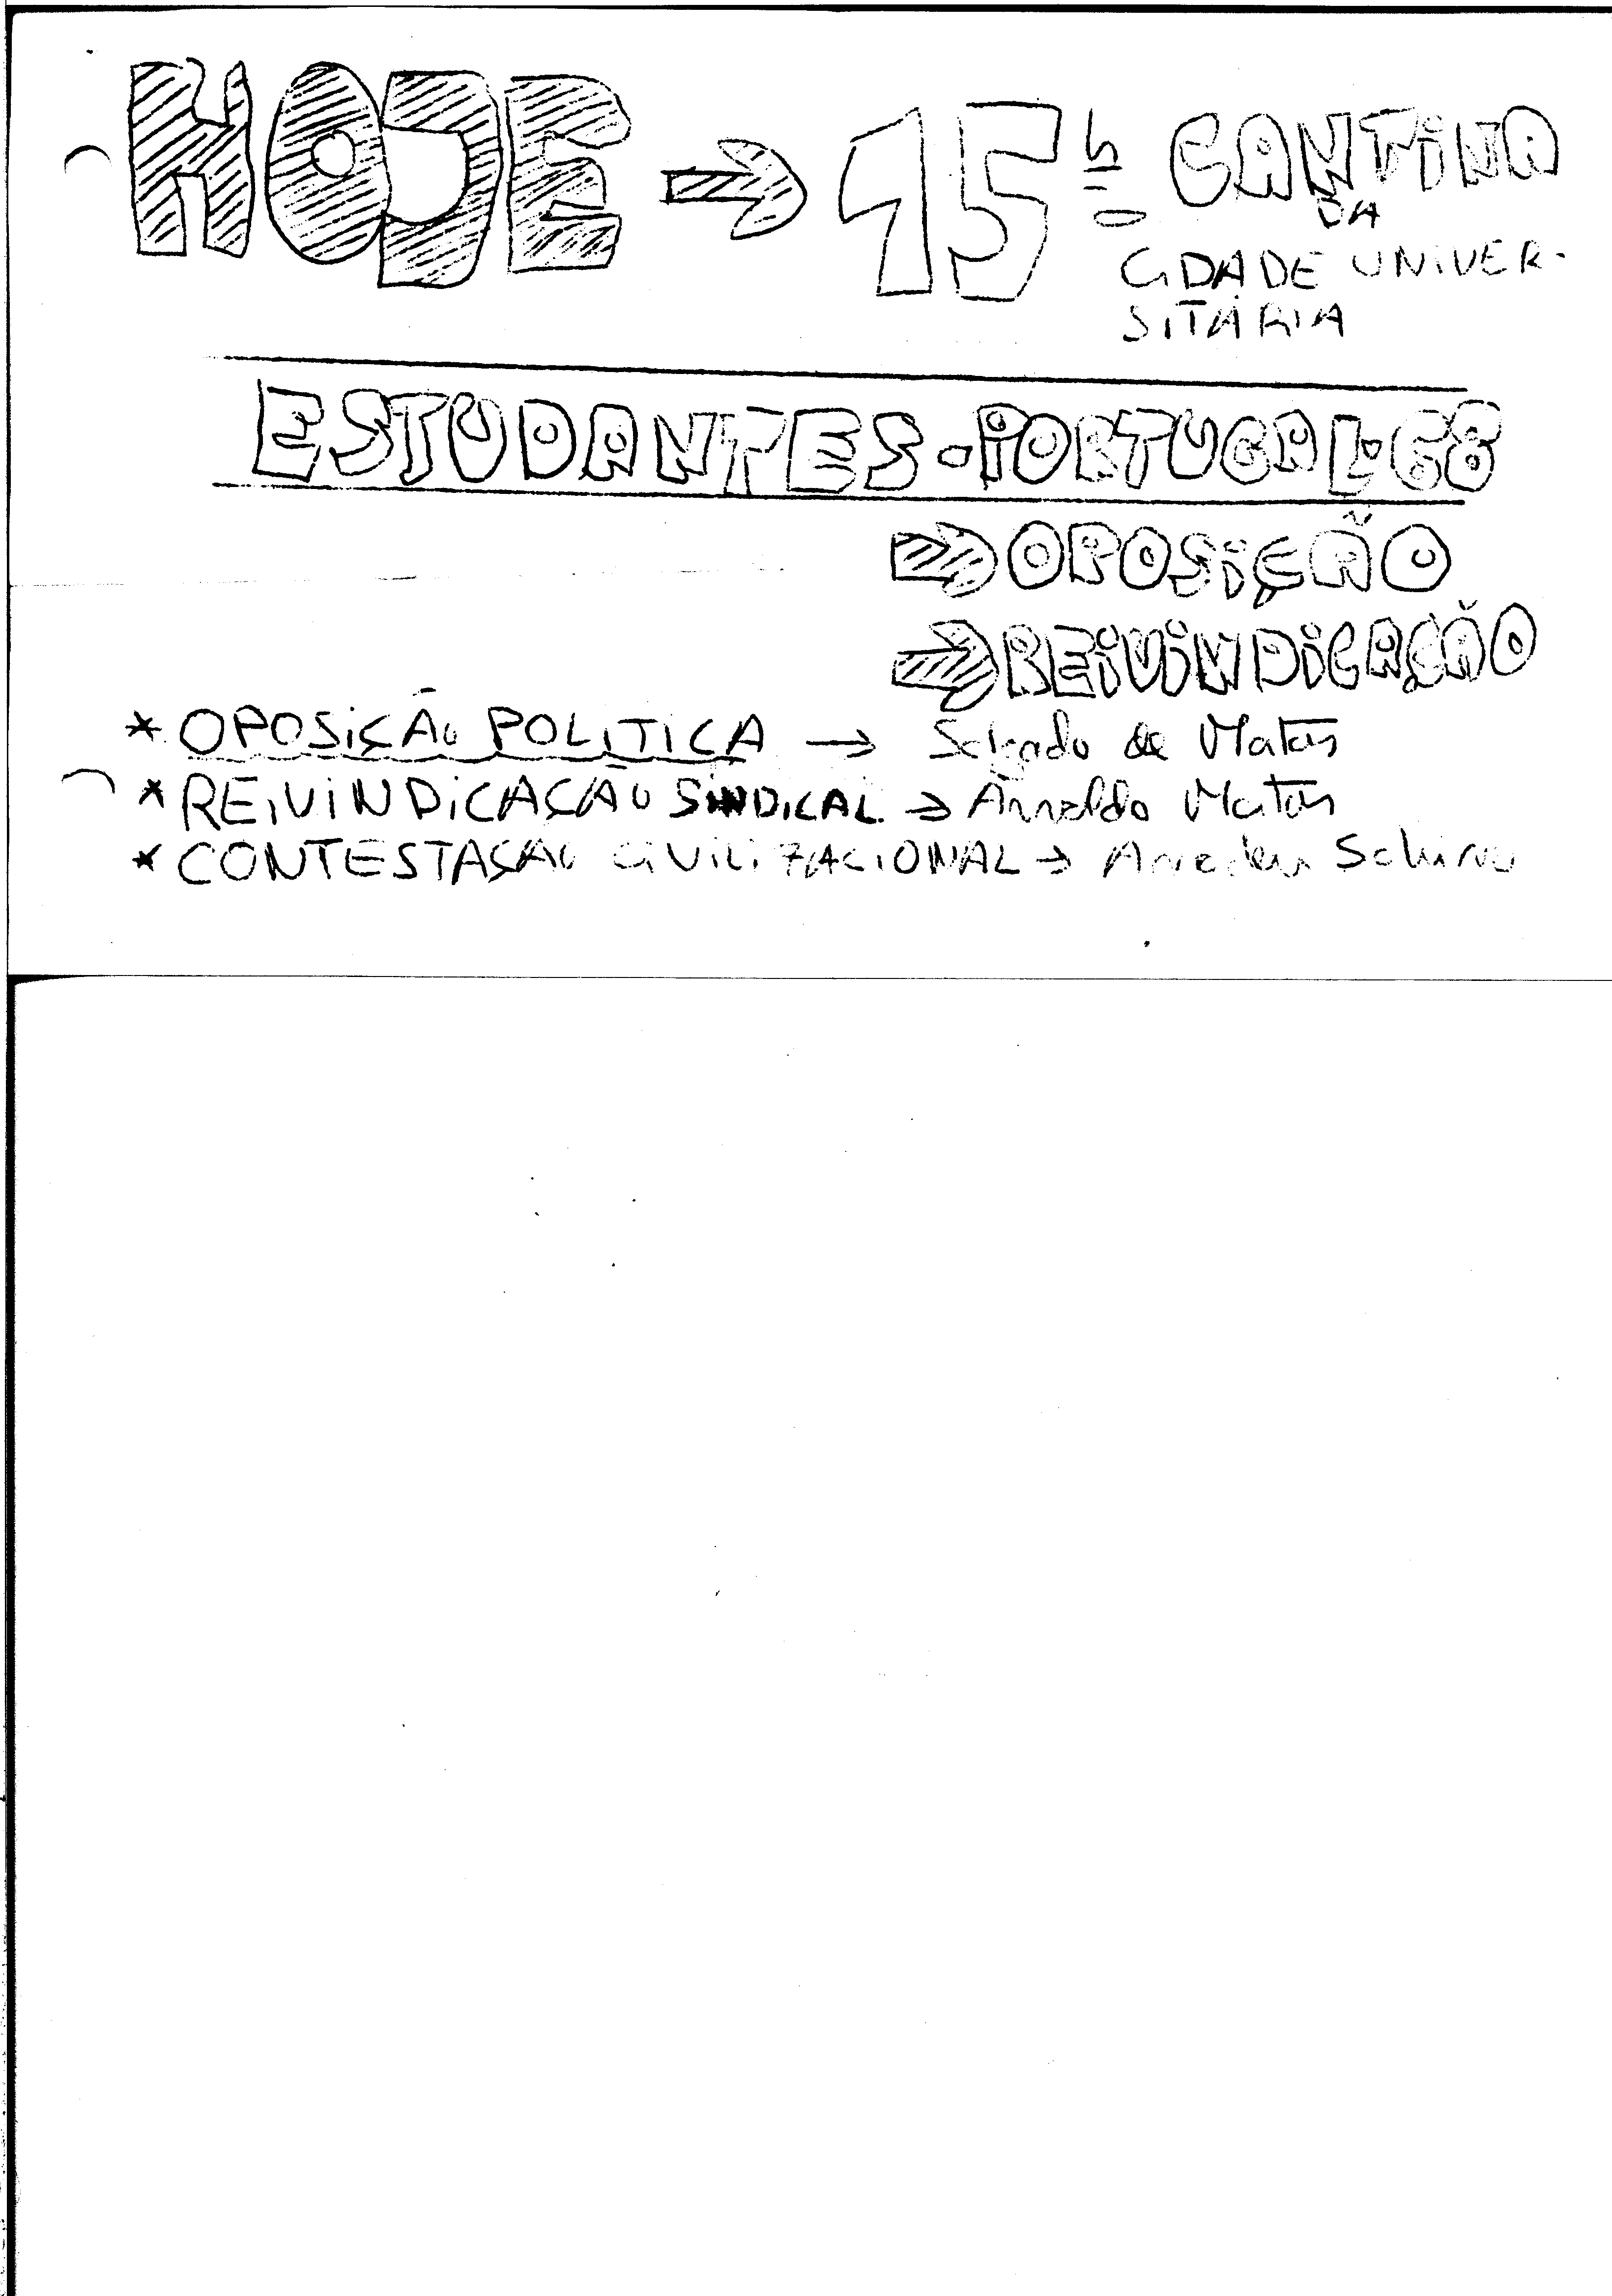 HOJE → 15h CANTINA
DA
CIDADE UNIVER-
SITÁRIA
ESTUDANTES-PORTUGAL-68
→ OPOSIÇÃO
→ REIVINDICAÇÃO
* OPOSIÇÃO POLITICA → Salgado de Matos
* REIVINDICAÇÃO SINDICAL → Arnaldo Matos
* CONTESTAÇÃO CIVILIZACIONAL → Amadeu